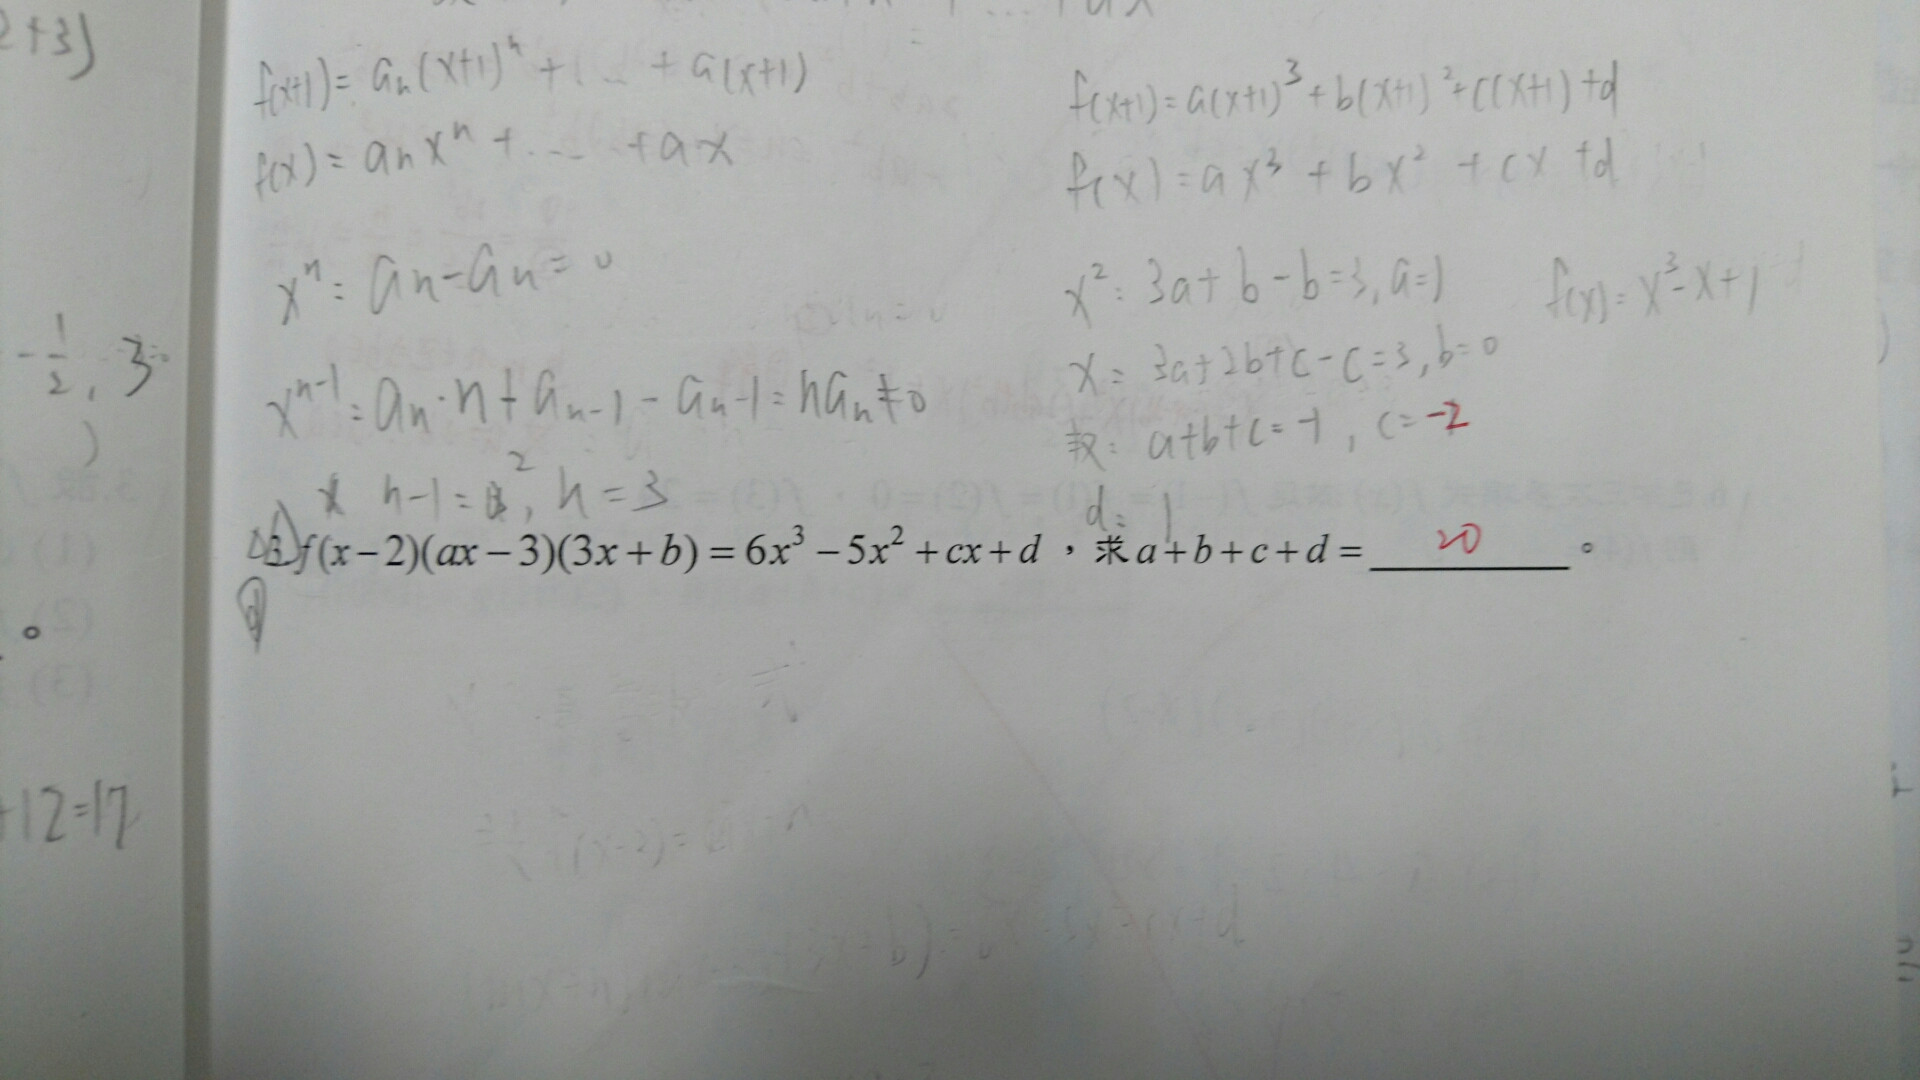 2+3)
f(x+1)= aₙ(x+1)ⁿ + ... + a(x+1)
f(x) = aₙxⁿ + ... + ax
xⁿ: aₙ-aₙ = 0
-1/2, 3
)
xⁿ⁻¹: aₙ·n+aₙ₋₁-aₙ₋₁=naₙ≠0
n-1=2, n=3
f(x+1)=a(x+1)³+b(x+1)²+c(x+1)+d
f(x)=ax³+bx²+cx+d
x²: 3a+b-b=3, a=1
f(x)=x³-x+1
x: 3a+2b+c-c=3, b=0
a+b+c=-1, c=-2
d=1
f(x-2)(ax-3)(3x+b)=6x³-5x²+cx+d,求a+b+c+d= 20 。
。
+12=17